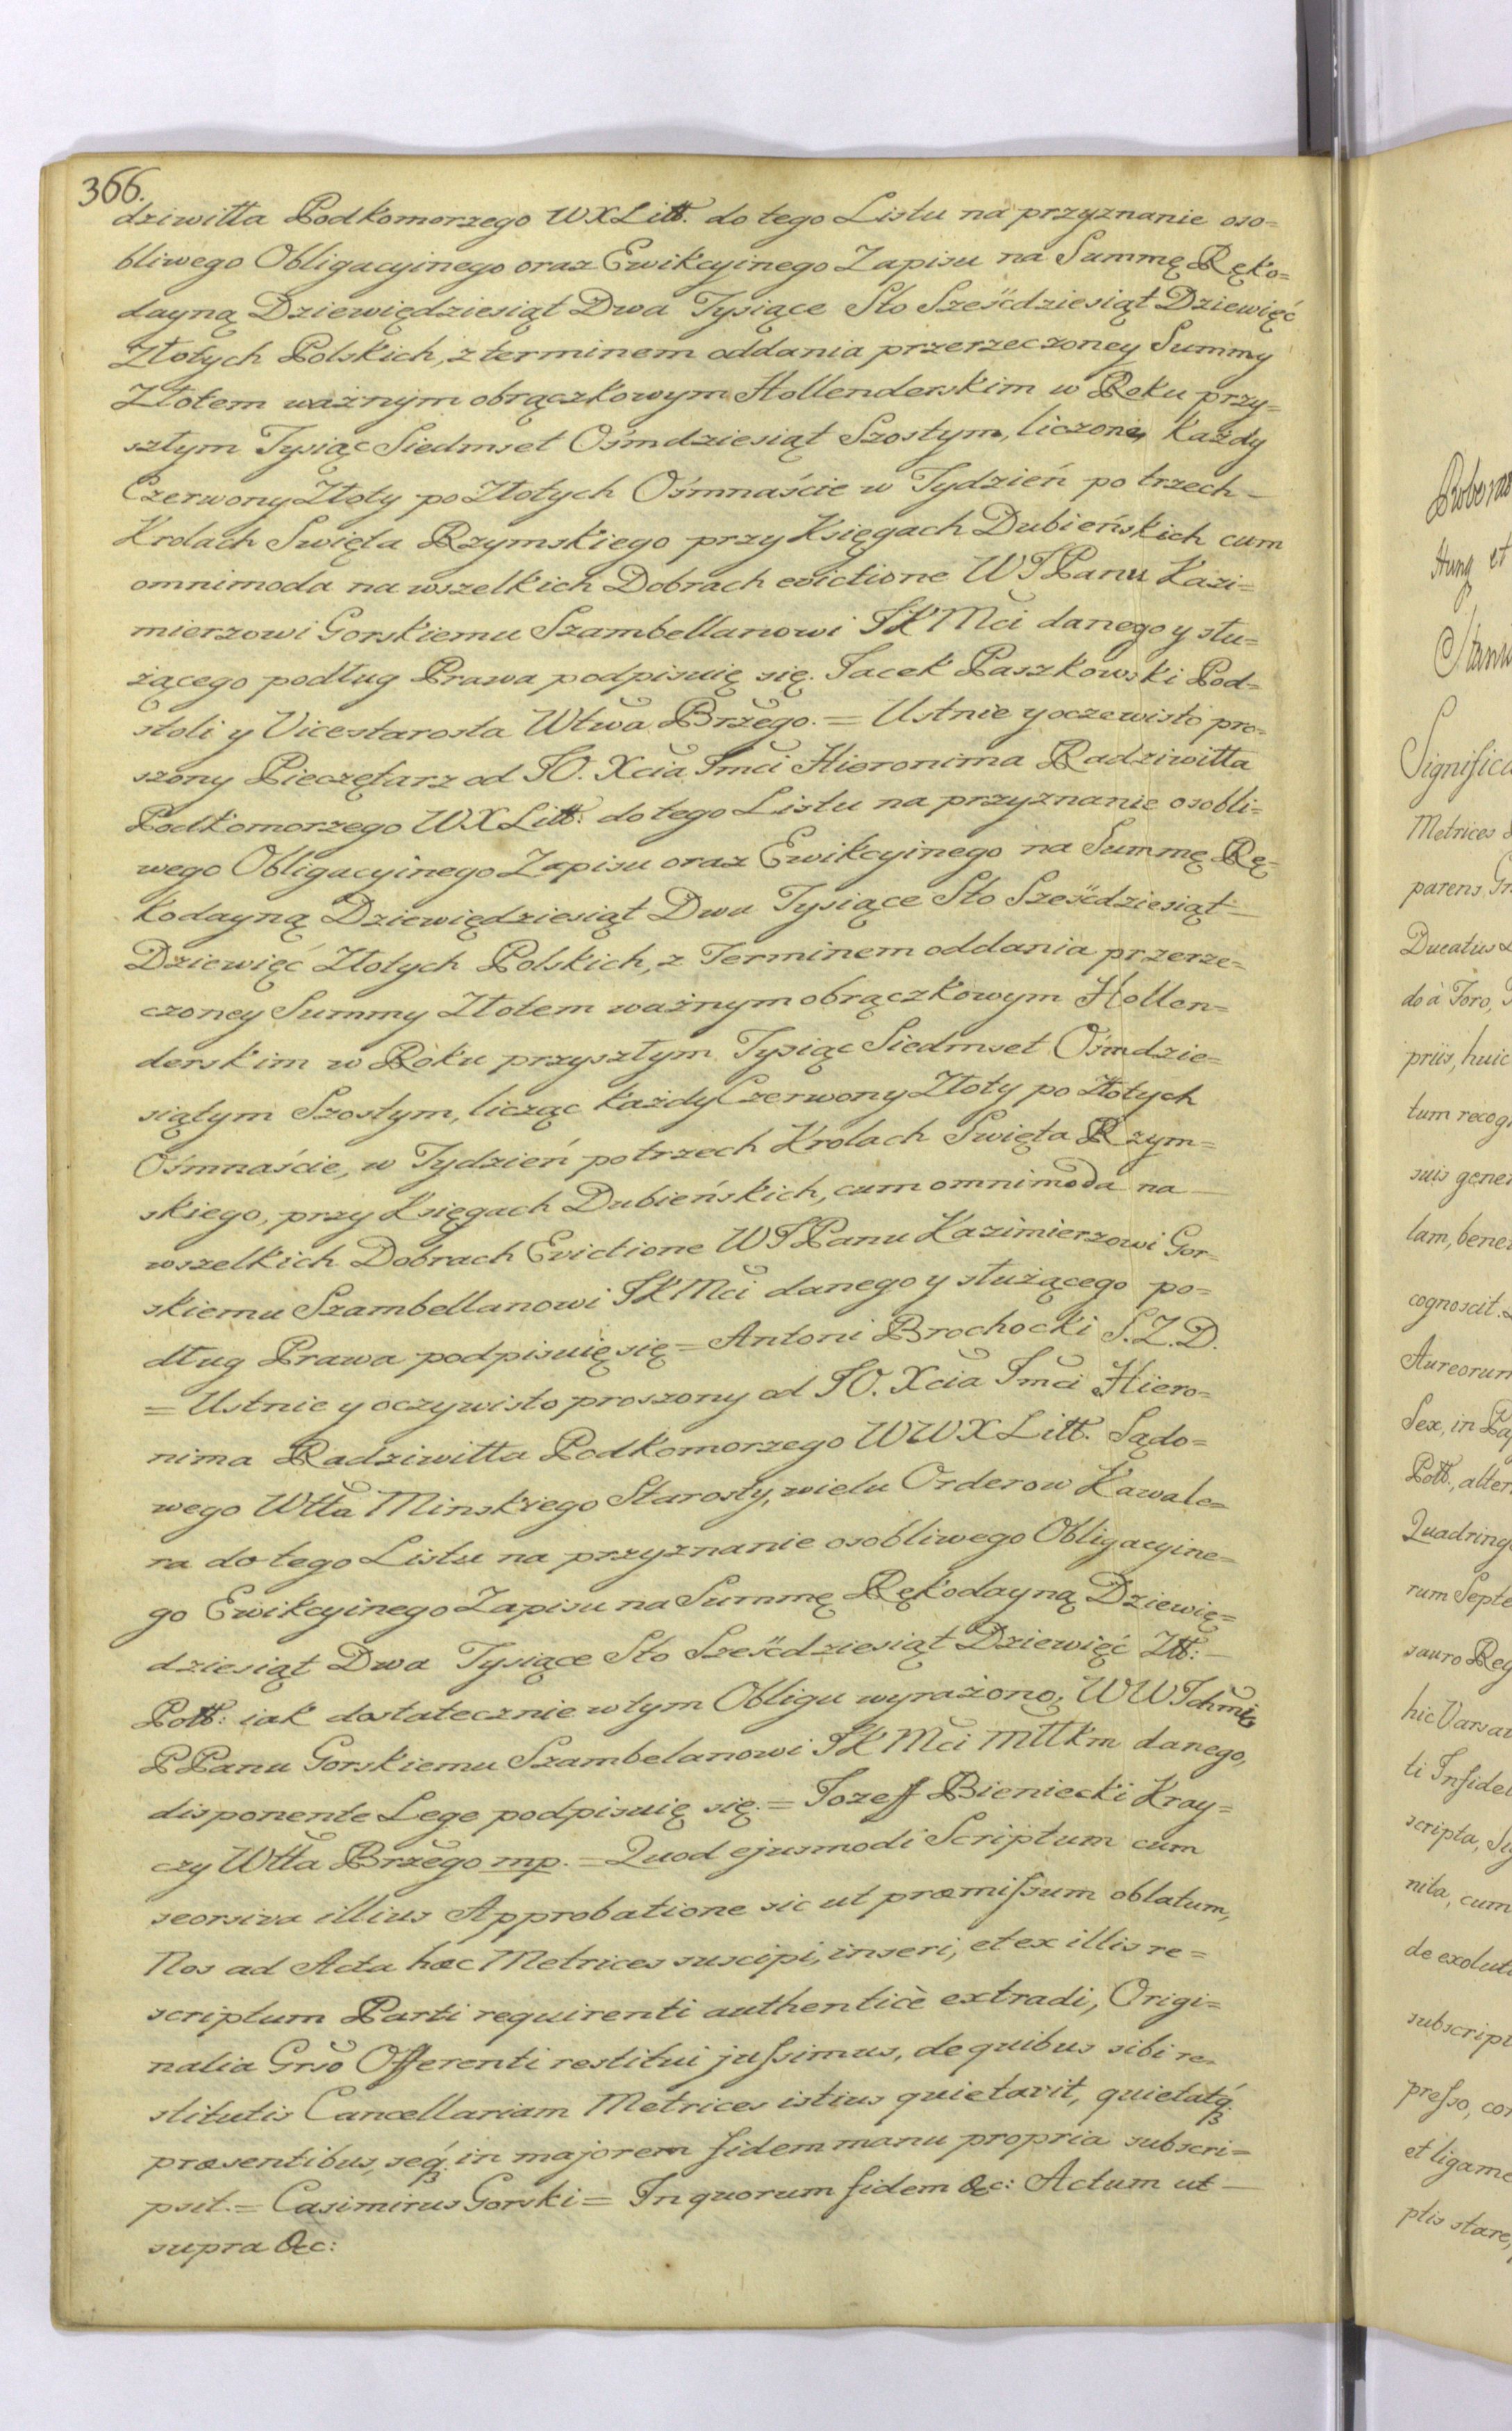 366.
dziwiłła Podkomorzego WXLitt. do tego Listu na przyznanie oso=
bliwego Obligacyinego oraz Ewikcyinego Zapisu na Summę Ręko=
dayną Dziewięcdziesiąt Dwa Tysiące Sto Sześćdziesiąt Dziewięć
Złotych Polskich, z terminem oddania przerzeczoney Summy
Złotem ważnym obrączkowym Hollenderskim w Roku przy=
szłym Tysiąc Siedmset Ośmdziesiąt Szostym, licząc każdy
Czerwony Złoty po Złotych Ośmnaście w Tydzień po trzech —
Krolach Swięta Rzymskiego przy Księgach Dubieńskich cum
omnimoda na wszelkich Dobrach evictione WJPanu Kazi=
mierzowi Gorskiemu Szambellanowi JKMci danego y słu=
żącego podług Prawa podpisuię się. Jacek Paszkowski Pod=
stoli y Vicestarosta Wtwa Brzego. = Ustnie y oczewisto pro=
szony Pieczętarz od JO. Xcia Jmci Hieronima Radziwiłła
Podkomorzego WXLitt: do tego Listu na przyznanie osobli=
wego Obligacyinego Zapisu oraz Ewikcyinego na Summę Rę=
kodayną Dziewięćdziesiąt Dwa Tysiące Sto Sześćdziesiąt —
Dziewięć Złotych Polskich, z Terminem oddania przerze=
czoney Summy Złotem ważnym obrączkowym Hollen=
derskim w Roku przyszłym Tysiąc Siedmset Ośmdzie=
siątym Szostym, licząc każdy Czerwony Złoty po Złotych
Ośmnaście, w Tydzień po trzech Krolach Swięta Rzym=
skiego, przy Księgach Dubieńskich, cum omnimoda na —
wszelkich Dobrach Evictione WJPanu Kazimierzowi Gor=
skiemu Szambellanowi JKMci danego y służącego po=
dług Prawa podpisuię się = Antoni Brochocki S.Z.D.
= Ustnie y oczywisto proszony od JO. Xcia Jmci Hiero=
nima Radziwiłła Podkomorzego WWXLitt. Sądo=
wego Wttа Minskiego Starosty, wielu Orderow Kawale=
ra do tego Listu na przyznanie osobliwego Obligacyine=
go Ewikcyinego Zapisu na Summę Rękodayną Dziewię=
dziesiąt Dwa Tysiące Sto Sześćdziesiąt Dziewięć Złł: —
Połł: iak dostatecznie w tym Obligu wyrażono, WWJchmię
PPanu Gorskiemu Szambelanowi JKMci Mttkm danego,
disponente Lege podpisuię się. = Jozeff Bieniecki Kray=
czy Wtta Brzego mp. = Quod ejusmodi Scriptum cum
seorsiva illius Approbatione sic ut præmissum oblatum,
Nos ad Acta hæc Metrices suscipi, inseri, et ex illis re=
scriptum Parti requirenti authenticè extradi, Origi=
nalia Grso Offerenti restitui jussimus, de quibus sibi re=
stitutis Cancellariam Metrices istius quietavit, quietatq;
præsentibus, seq; in majorem fidem manu propria subscri=
psit. = Casimirus Gorski = In quorum fidem &c: Actum ut —
supra &c:
Stani
Significa
Metrices
parens
Ducatus
do à Foro,
priis, huic
tum recog
suis gene
lam, bene
cognoscit.
Aureorum
Sex, in
Poll., alter
Quadring
rum Septe
sauro Reg
hic Varsa
ti Infide
scripta,
nita, cum
de exolut
subscript
presso, co
et ligam
ptis stare,